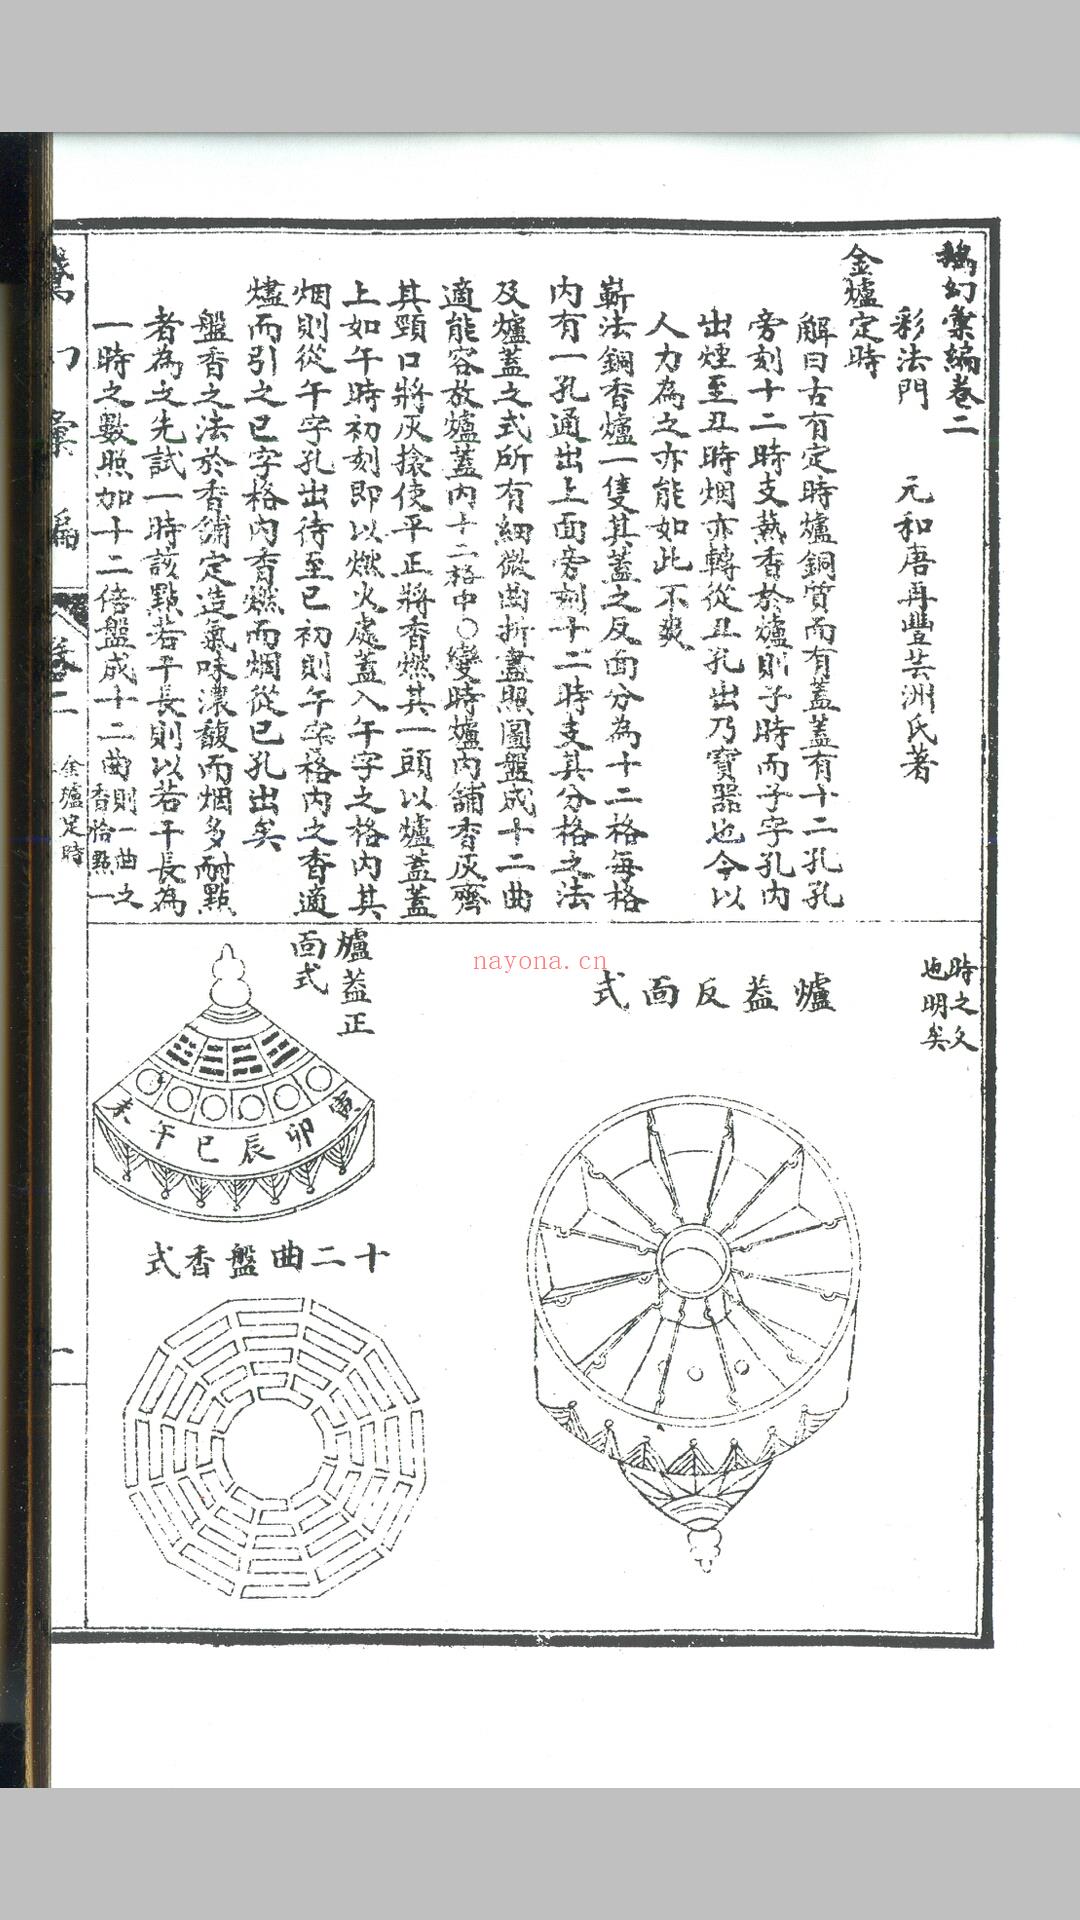 鵝幻彙編卷二
彩法門　元和唐再豐芸洲氏著
金爐定時
解曰古有定時爐銅質而有蓋蓋有十二孔孔
旁刻十二時支爇香於爐則子時而子字孔內
出煙至丑時烟亦轉從丑孔出乃寶器也今以
人力為之亦能如此不爽
嶄法銅香爐一隻其蓋之反面分為十二格每格
內有一孔通出上面旁刻十二時支其分格之法
及爐蓋之式所有細微曲折盡照圖盤成十二曲
適能容放爐蓋內十二格中○變時爐內舖香灰齊
其頸口將灰搇使平正將香燃其一頭以爐蓋蓋
上如午時初刻即以燃火處蓋入午字之格內其
烟則從午字孔出待至巳初則午字格內之香適
燼而引之巳字格內香燃而烟從巳孔出矣
盤香之法於香舖定造氣味濃馥而烟多耐點
者為之先試一時該點若干長則以若干長為
一時之數照加十二倍盤成十二曲則一曲之香恰點一
時之久也明矣
爐蓋反面式
爐蓋正面式
寅卯辰巳午未
十二曲盤香式
鵝幻彙編
卷二
金爐定時
一
nayona.cn